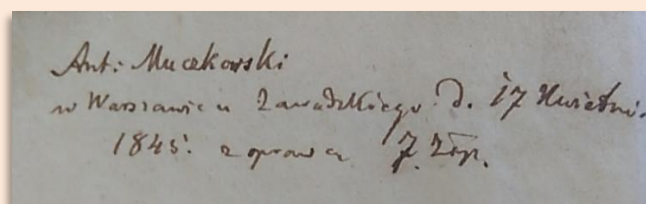 Ant: Muczkowski
w Warszawie u Zawadzkiego d. 17 Kwietni
1845. z oprawą 7. Złp.